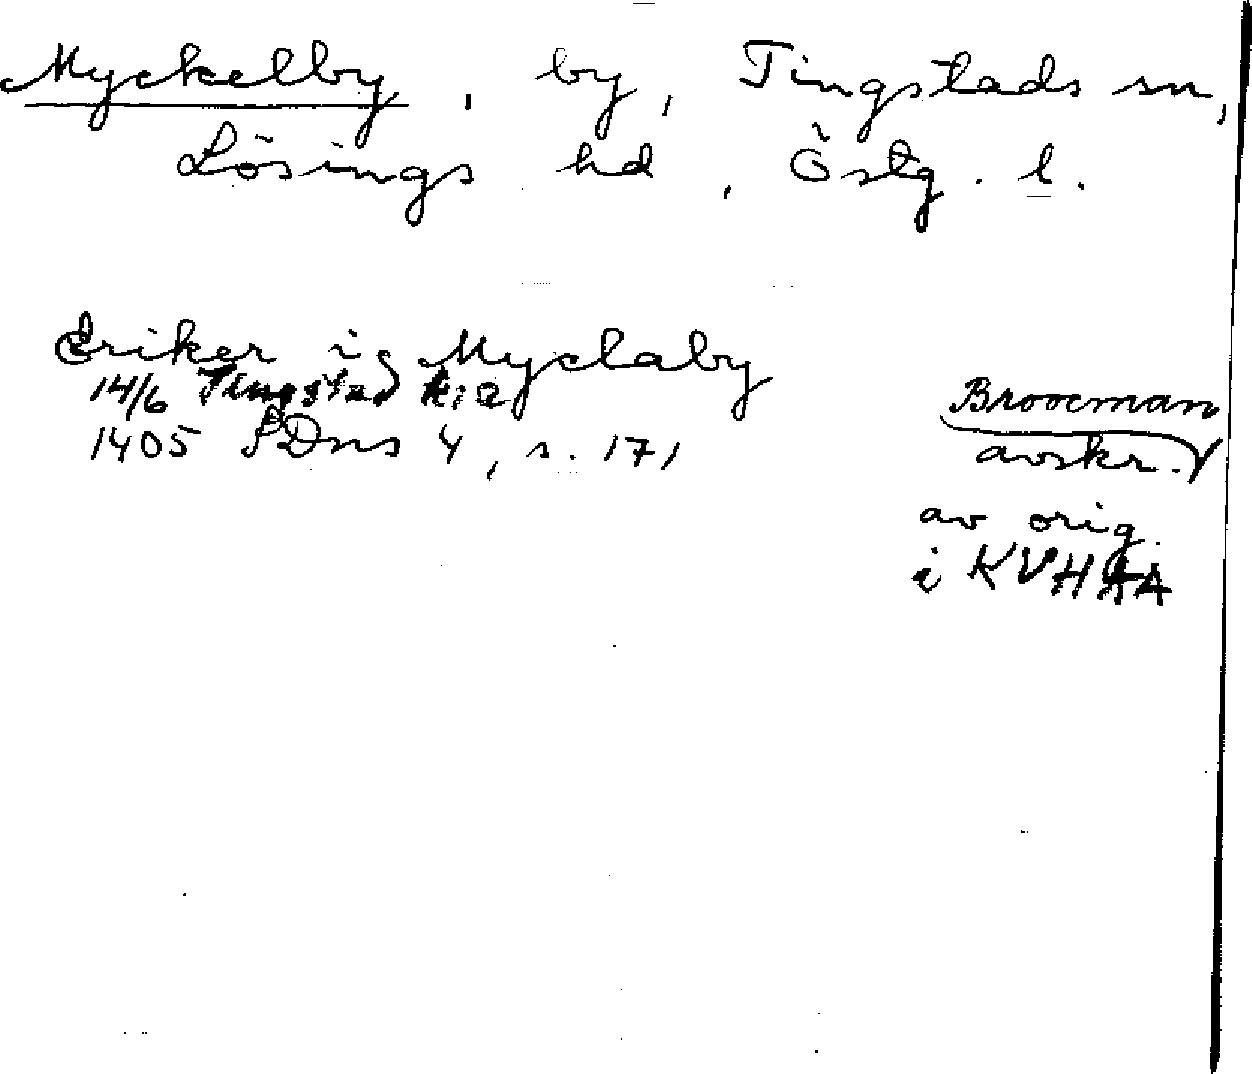 Myckelby, by, Tingstads sn,
Lösings hd, Östg. l.
Eriker i Myclaby
14/6 Tingstad k:a
1405 SDns 4, s. 171
Broocman
avskr.
av orig.
i KVHAA